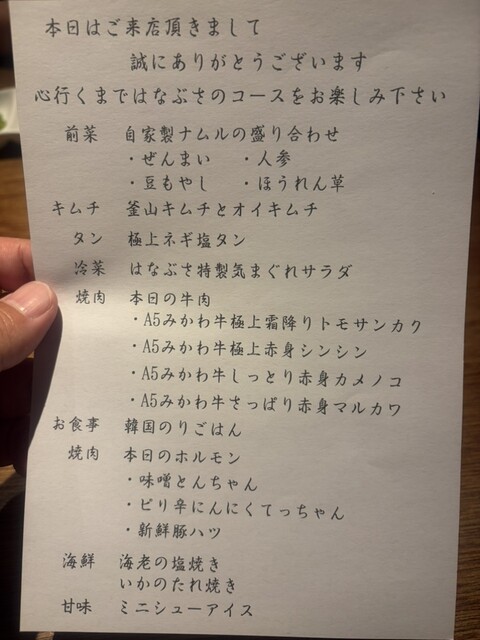 本日はご来店頂きまして
誠にありがとうございます
心行くまではなぶさのコースをお楽しみ下さい
前菜 自家製ナムルの盛り合わせ
・ぜんまい ・人参
・豆もやし ・ほうれん草
キムチ 釜山キムチとオイキムチ
タン 極上ネギ塩タン
冷菜 はなぶさ特製気まぐれサラダ
焼肉 本日の牛肉
・A5みかわ牛極上霜降りトモサンカク
・A5みかわ牛極上赤身シンシン
・A5みかわ牛しっとり赤身カメノコ
・A5みかわ牛さっぱり赤身マルカワ
お食事 韓国のりごはん
焼肉 本日のホルモン
・味噌とんちゃん
・ピリ辛にんにくてっちゃん
・新鮮豚ハツ
海鮮 海老の塩焼き
いかのたれ焼き
甘味 ミニシューアイス